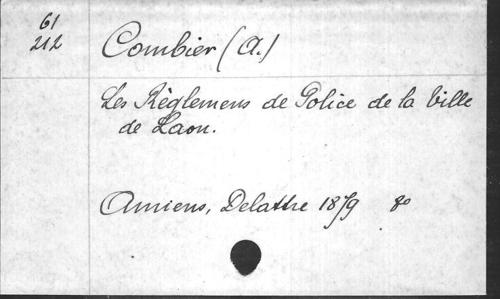 61
212
Combier (A.)
Les Règlemens de Police de la Ville
de Laon.
Amiens, Delattre 1879 8º